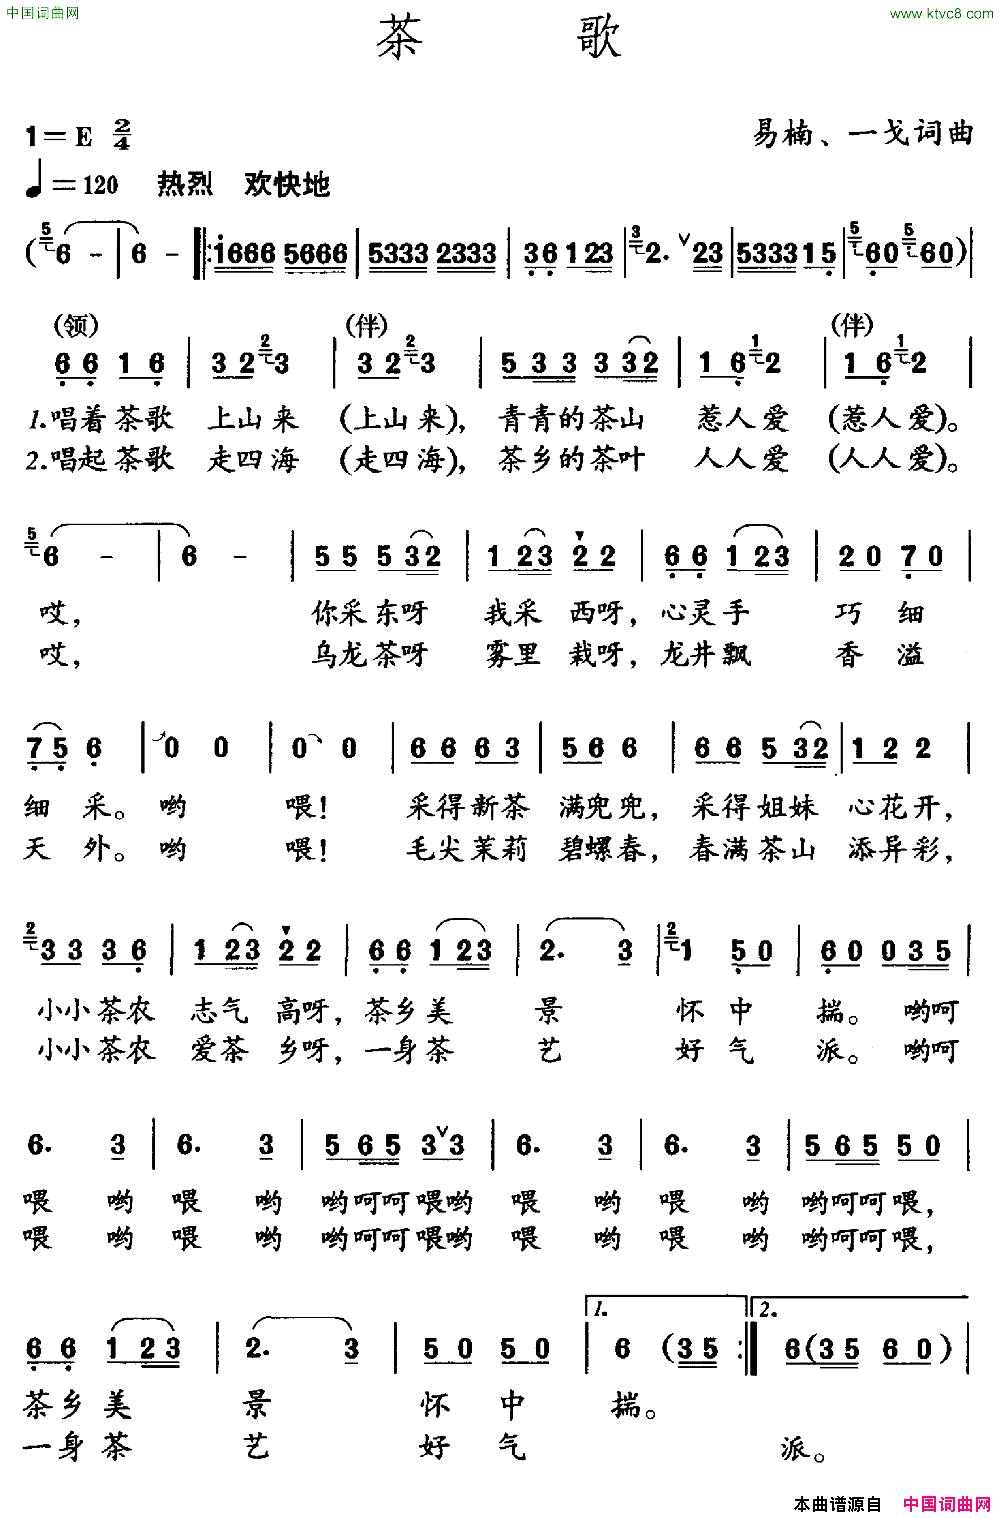 中国词曲网 www.ktvc8.com
茶 歌
1=E 2/4 易楠、一戈词曲
♩=120 热烈 欢快地
(5 6 - | 6 - ‖: i666 5666 | 5333 2333 | 36 123 | 3 2. ∨ 23 | 5333 15 | 5 60 5 60) |
(领) (伴) (伴)
66 16 | 32 2 3 | 32 2 3 | 533 332 | 16 1 2 | 16 1 2 |
1.唱着茶歌 上山来 (上山来), 青青的茶山 惹人爱 (惹人爱)。
2.唱起茶歌 走四海 (走四海), 茶乡的茶叶 人人爱 (人人爱)。
5 6 - | 6 - | 55 532 | 123 22 | 66 123 | 20 70 |
哎, 你采东呀 我采西呀, 心灵手 巧细
哎, 乌龙茶呀 雾里栽呀, 龙井飘 香溢
75 6 | 0 0 | 0 0 | 66 63 | 56 6 | 66 532 | 12 2 |
细采。哟 喂! 采得新茶 满兜兜, 采得姐妹 心花开,
天外。哟 喂! 毛尖茉莉 碧螺春, 春满茶山 添异彩,
2 33 36 | 123 22 | 66 123 | 2. 3 | 2 1 50 | 60 035 |
小小茶农 志气高呀, 茶乡美 景 怀中 揣。哟呵
小小茶农 爱茶乡呀, 一身茶 艺 好气 派。哟呵
6. 3 | 6. 3 | 565 3∨3 | 6. 3 | 6. 3 | 565 50 |
喂 哟 喂 哟 哟呵呵喂哟 喂 哟 喂 哟 哟呵呵喂,
喂 哟 喂 哟 哟呵呵喂哟 喂 哟 喂 哟 哟呵呵喂,
1. 2.
66 123 | 2. 3 | 50 50 | 6 (35 :‖ 6(35 60) |
茶乡美 景 怀中 揣。
一身茶 艺 好气 派。
本曲谱源自 中国词曲网